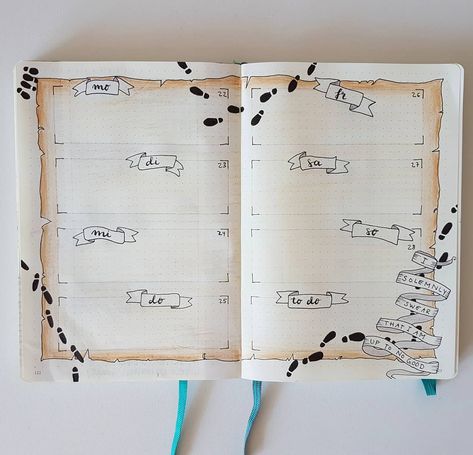 mo
22
di
23
mi
24
do
25
fr
26
sa
27
so
28
to do
I
SOLEMNLY
SWEAR
THAT I AM
UP TO NO GOOD